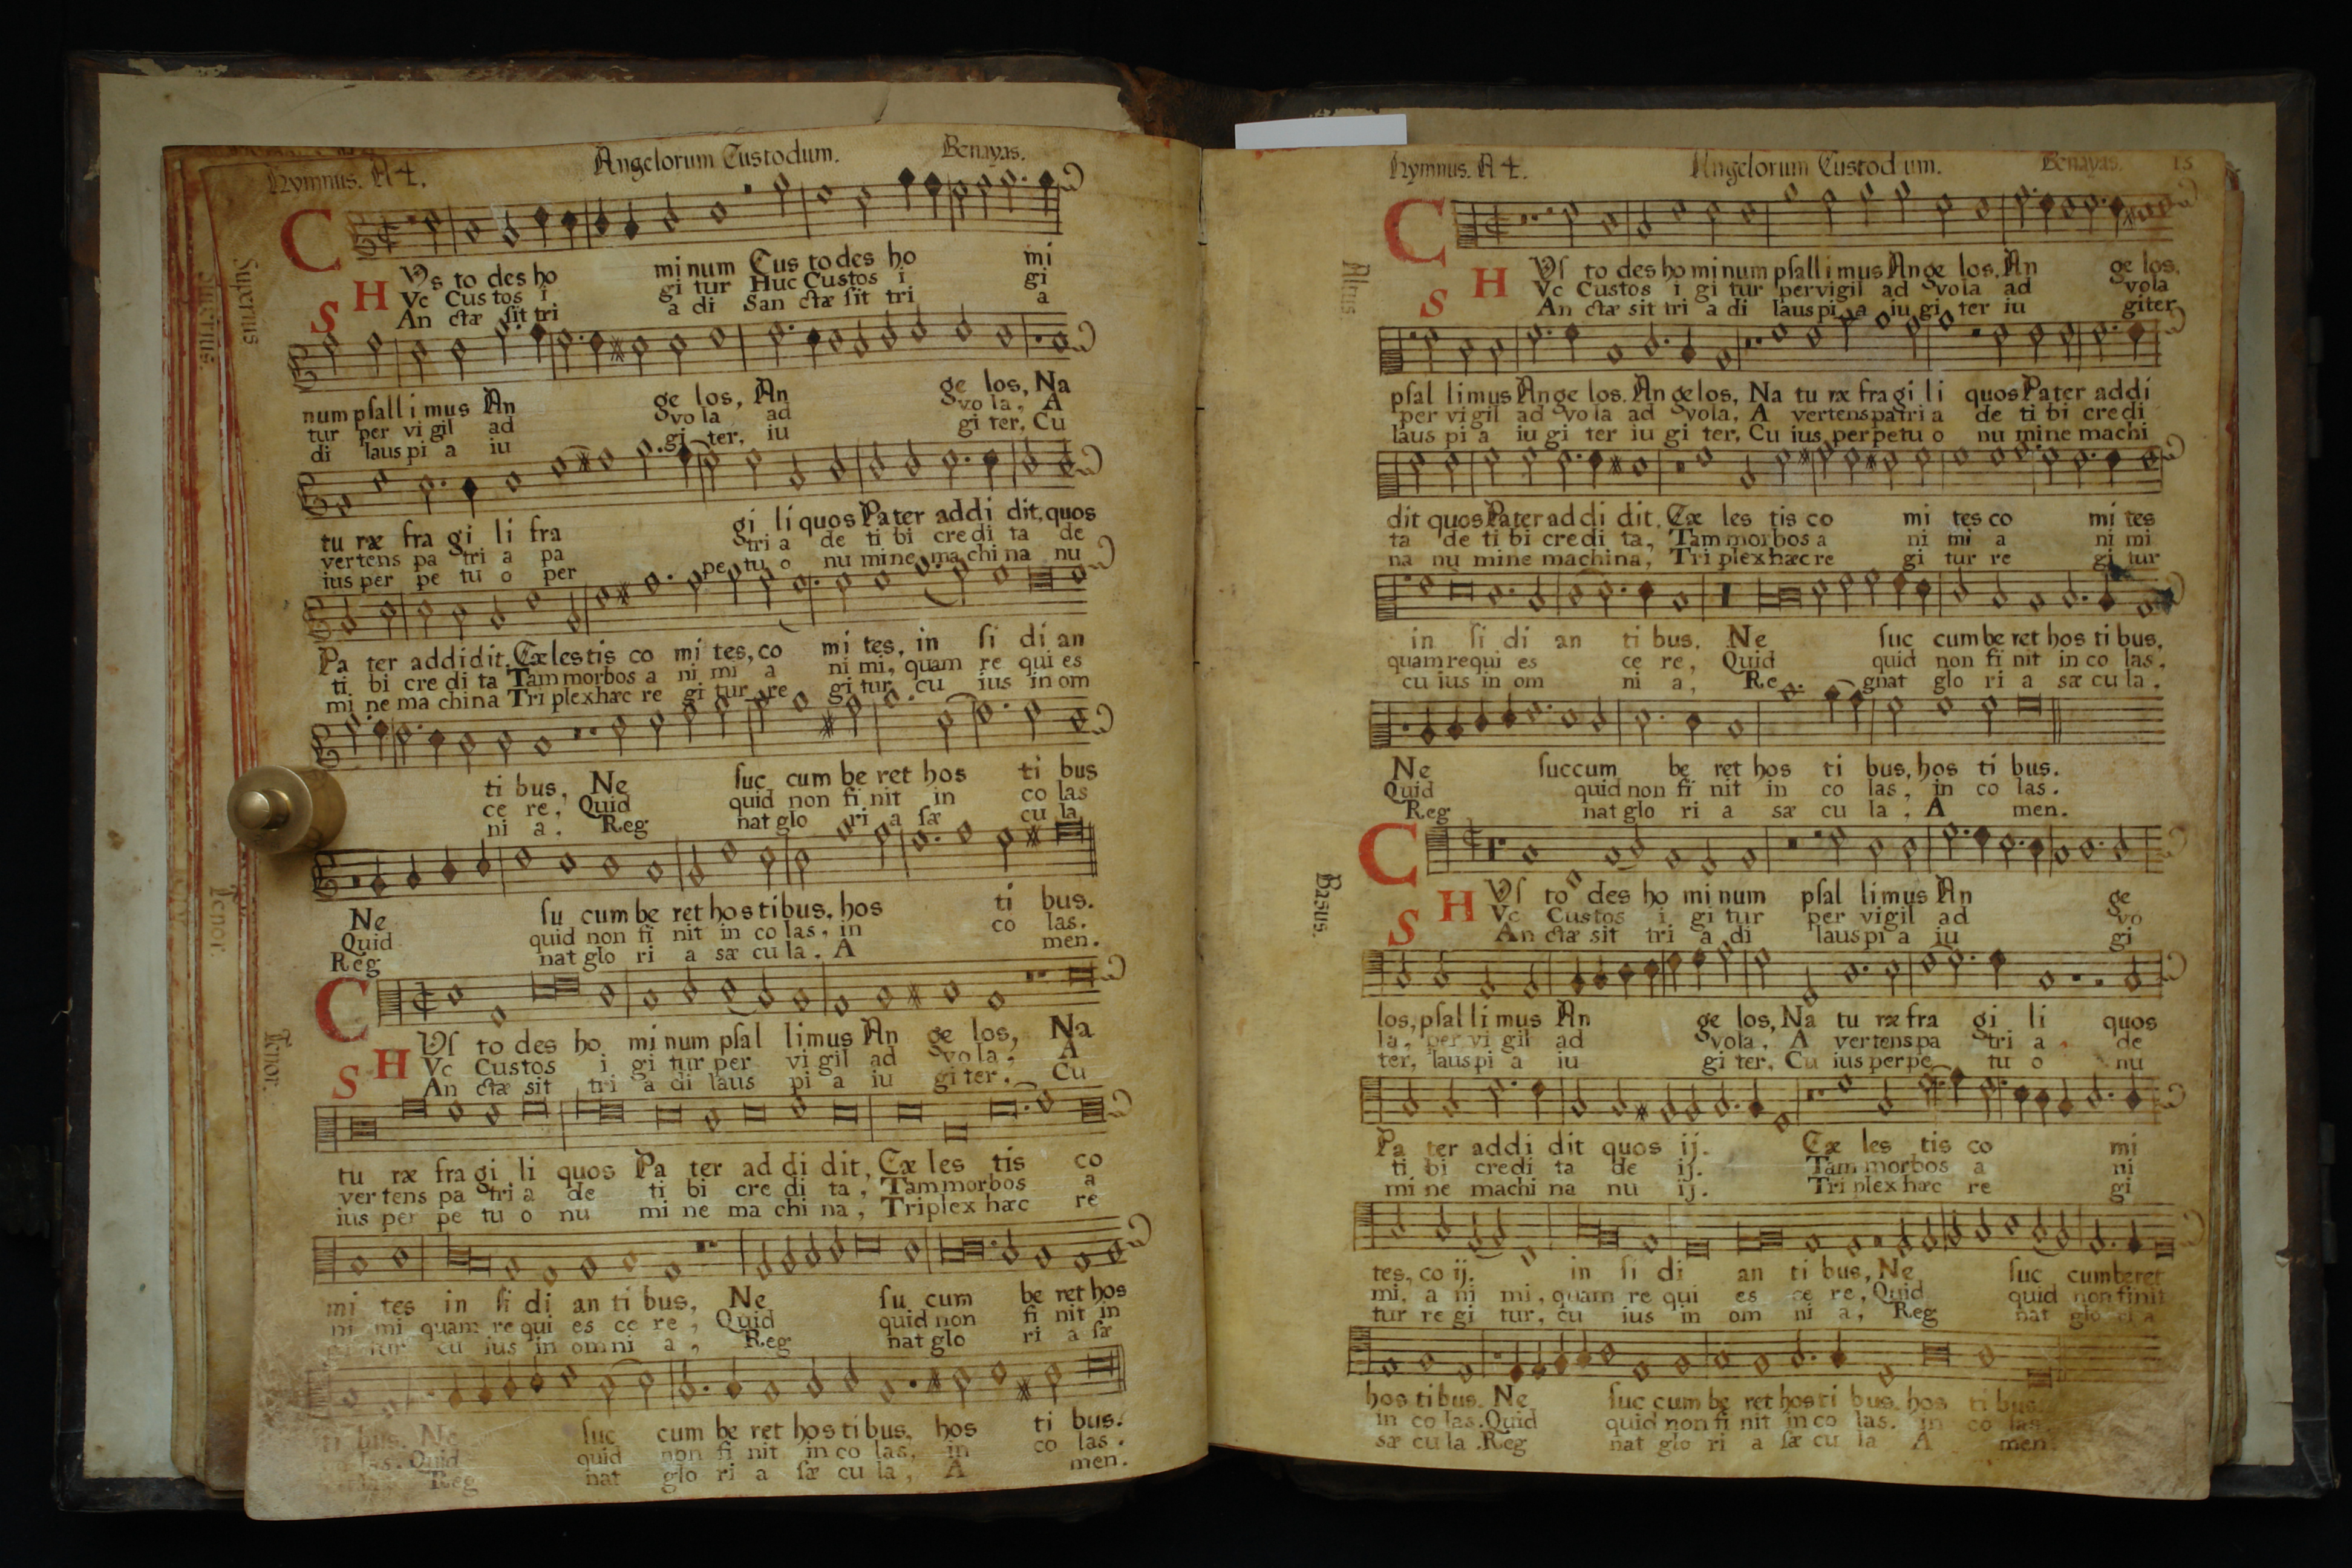 Hymnus. A 4. Angelorum Custodum. Benayas.
Superius
CVs to des ho mi num Cus to des ho mi
HVc Cus tos i gi tur Huc Custos i gi
SAn ctæ sit tri a di San ctæ sit tri a
num psal li mus An ge los, An ge los, Na
tur per vi gil ad vo la ad vo la, A
di laus pi a iu gi ter, iu gi ter, Cu
tu ræ fra gi li fra gi li quos Pa ter ad di dit, quos
vertens pa tri a pa tri a de ti bi cre di ta de
ius per pe tu o per pe tu o nu mi ne ma chi na nu
Pa ter ad di dit, Cæ les tis co mi tes, co mi tes, in si di an
ti bi cre di ta Tam morbos a ni mi a ni mi, quam re qui es
mi ne ma chi na Tri plex hæc re gi tur re gi tur cu ius in om
ti bus, Ne suc cum be ret hos ti bus
ce re, Quid quid non fi nit in co las
ni a. Reg nat glo ri a sæ cu la
Ne su cum be ret hos ti bus, hos ti bus.
Quid quid non fi nit in co las, in co las.
Reg nat glo ri a sæ cu la. A men.
Tenor.
CVſ to des ho mi num pſal li mus An ge los, Na
HVc Custos i gi tur per vi gil ad vo la, A
SAn ctæ sit tri a di laus pi a iu gi ter. Cu
tu ræ fra gi li quos Pa ter ad di dit, Cæ les tis co
ver tens pa tri a de ti bi cre di ta, Tam morbos a
ius per pe tu o nu mi ne ma chi na, Triplex hæc re
mi tes in ſi di an ti bus, Ne su cum be ret hos
ni mi quam re qui es ce re, Quid quid non fi nit in
tur cu ius in om ni a, Reg nat glo ri a ſæ
ti bus. Ne ſuc cum be ret hos ti bus, hos ti bus.
las. Quid quid non fi nit in co las, in co las.
Reg nat glo ri a ſæ cu la, A men.
Hymnus. A 4. Angelorum Custodum. Benayas. 13
Altus
CVſ to des ho mi num pſal li mus An ge los, An ge los,
HVc Custos i gi tur per vigil ad vola ad vola
SAn ctæ sit tri a di laus pi a iu gi ter iu giter
pſal li mus An ge los. An ge los, Na tu ræ fra gi li quos Pa ter ad di
per vi gil ad vo la ad vola, A vertens patri a de ti bi cre di
laus pi a iu gi ter iu gi ter, Cu ius per pe tu o nu mi ne machi
dit quos Pa ter ad di dit, Cæ les tis co mi tes co mi tes
ta de ti bi cre di ta, Tam morbos a ni mi a ni mi
na nu mi ne machi na, Tri plex hæc re gi tur re gi tur
in ſi di an ti bus, Ne ſuc cum be ret hos ti bus,
quam re qui es ce re, Quid quid non fi nit in co las,
cu ius in om ni a, Re gnat glo ri a sæ cu la.
Ne ſuc cum be ret hos ti bus, hos ti bus.
Quid quid non fi nit in co las, in co las.
Reg nat glo ri a sæ cu la, A men.
Basus.
CVſ to des ho mi num pſal li mus An ge
HVc Custos i gi tur per vigil ad vo
SAn ctæ sit tri a di laus pi a iu gi
los, pſal li mus An ge los, Na tu ræ fra gi li quos
la, per vi gil ad vola, A vertens pa tri a, de
ter, laus pi a iu gi ter, Cu ius per pe tu o nu
Pa ter ad di dit quos ij. Cæ les tis co mi
ti bi credi ta de ij. Tam morbos a ni
mi ne machi na nu ij. Tri plex hæc re gi
tes, co ij. in ſi di an ti bus, Ne ſuc cumberet
mi, a ni mi, quam re qui es ce re, Quid quid non finit
tur re gi tur, cu ius in om ni a, Reg nat glo ri a
hos ti bus. Ne ſuc cum be ret hos ti bus, hos ti bus.
in co las. Quid quid non fi nit in co las. in co las.
sæ cu la. Reg nat glo ri a ſæ cu la A men